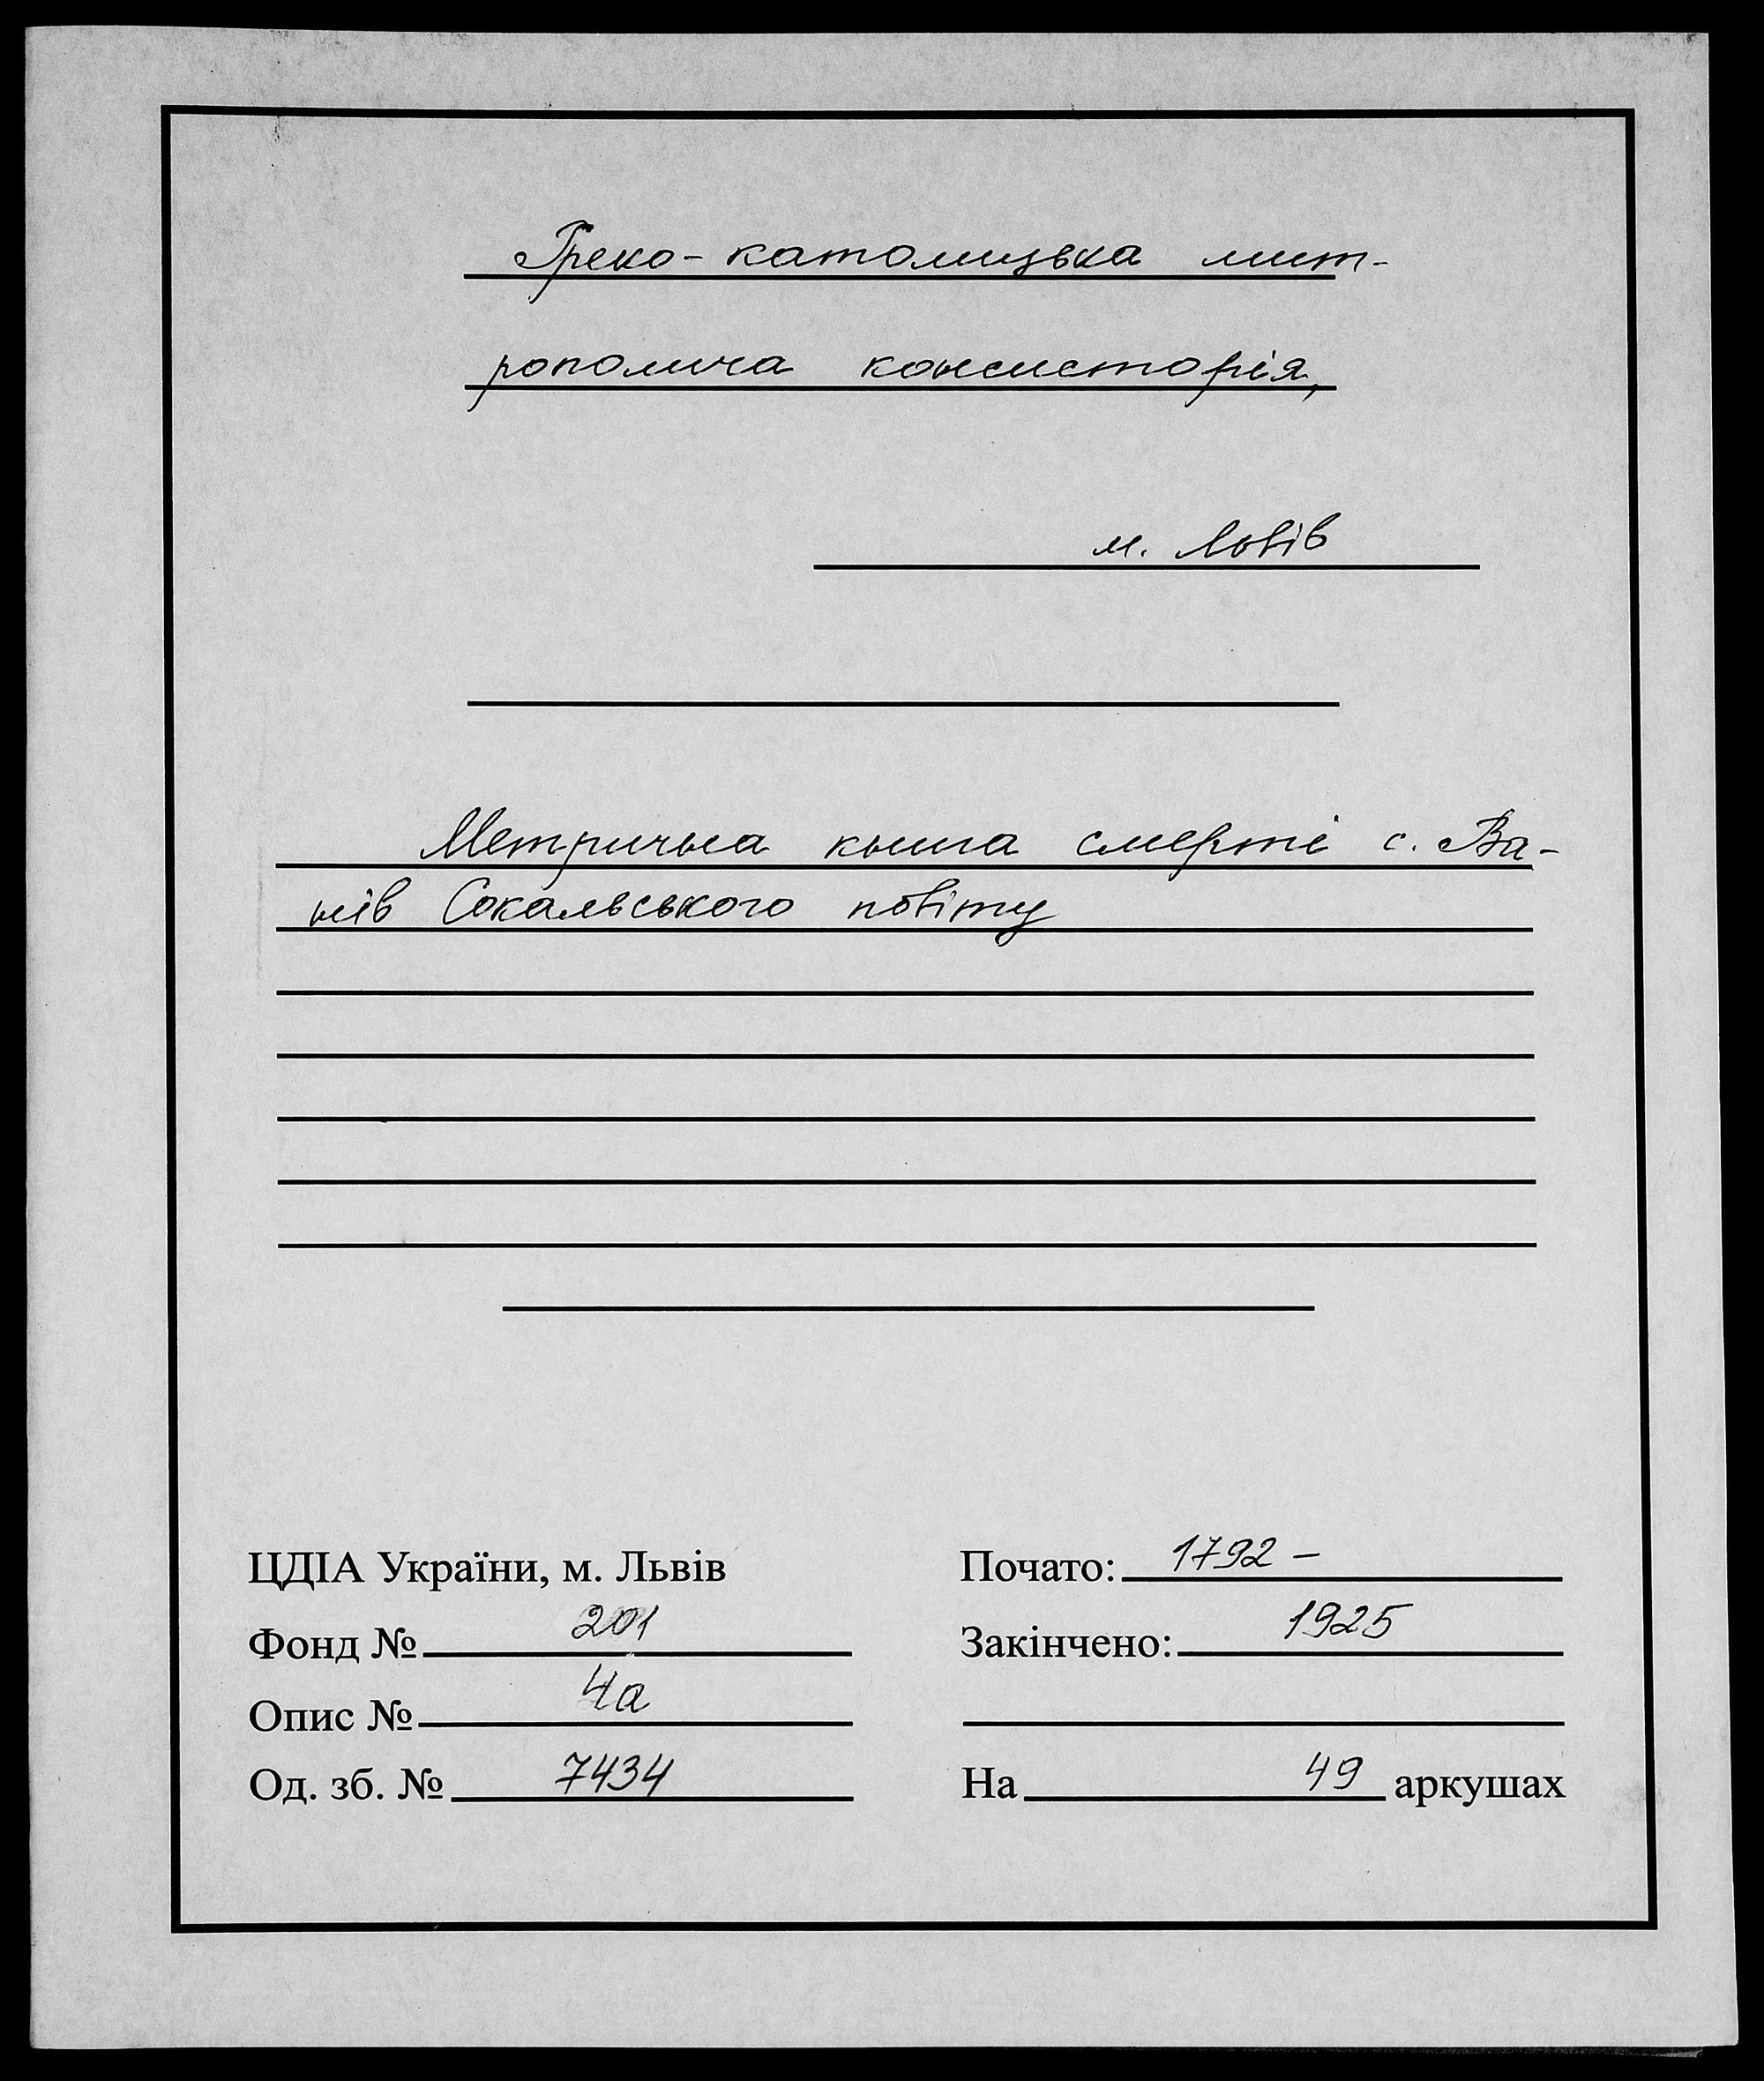 Греко-католицька мит-
рополича консисторія,
м. Львів
Метрична книга смерті с. Ва-
нів Сокальського повіту
ЦДІА України, м. Львів
Фонд № 201
Опис № 4а
Од. зб. № 7434
Почато: 1792 –
Закінчено: 1925
На 49 аркушах